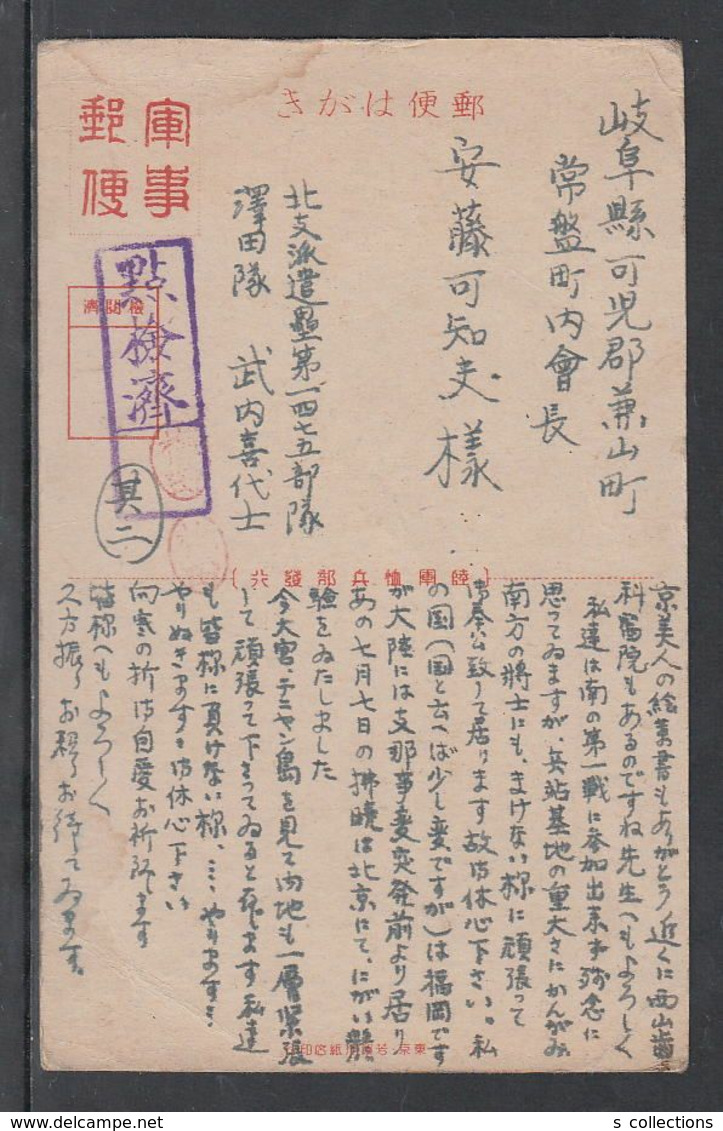 郵便はがき
軍事
郵便
檢閲濟
點檢濟
其二
岐阜縣可児郡兼山町
常盤町内會長
安藤可知夫様
北支派遣壘第一四七五部隊
澤田隊 武内喜代士
(陸軍恤兵部發行)
京美人の絵葉書もありがとう近くに西山歯
科醫院もあるのですね先生へもよろしく
私達は南の第一戦に参加出来ず残念に
思ってゐますが、兵站基地の重大さにかんがみ
南方の將士にも、まけない様に頑張って
御奉公致して居ります故御休心下さい。私
の国(国と云へば少し変ですが)は福岡です
が大陸には支那事変突発前より居り
あの七月七日の拂暁は北京にて、にがい経
驗をゐたしました
今大宮、テニヤン島を見て内地も一層緊張
して頑張って下さってゐると存じます私達
も皆様に負けない様、…やります…
やりぬきます…御休心下さい
向寒の折御自愛お祈りします
皆様へもよろしく
又方振りお頼りお待してゐます。
東京
s collections